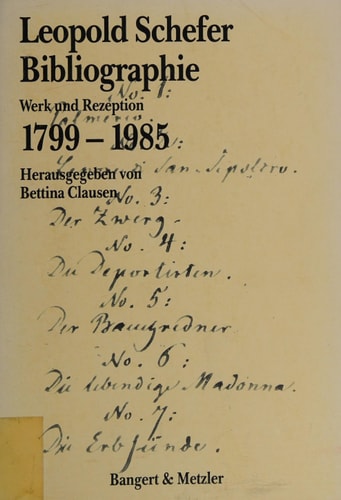 Leopold Schefer
Bibliographie
No. 1:
Werk und Rezeption
Palmerio.
1799 – 1985
San-Sepolcro.
Herausgegeben von
Bettina Clausen
No. 3:
Der Zwerg.
No. 4:
Die Deportirten.
No. 5:
Der Baumredner
No. 6:
Die lebendige Madonna.
No. 7:
Die Erbsünde.
Bangert & Metzler